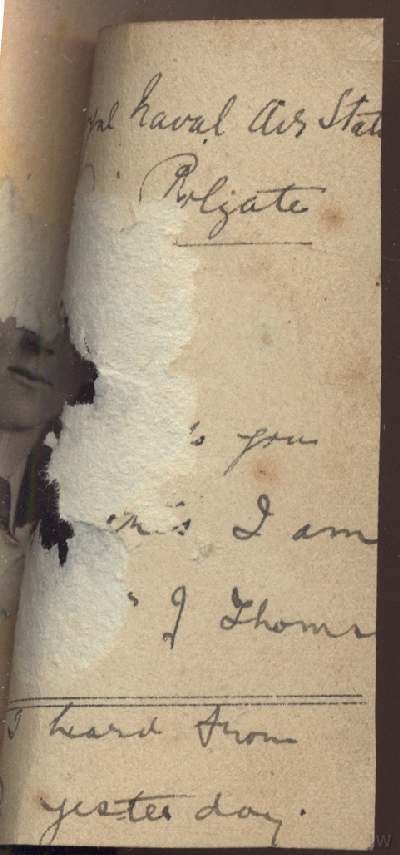 Naval Air State
Polgate
to you
I am
J Thoms
I heard from
yesterday.